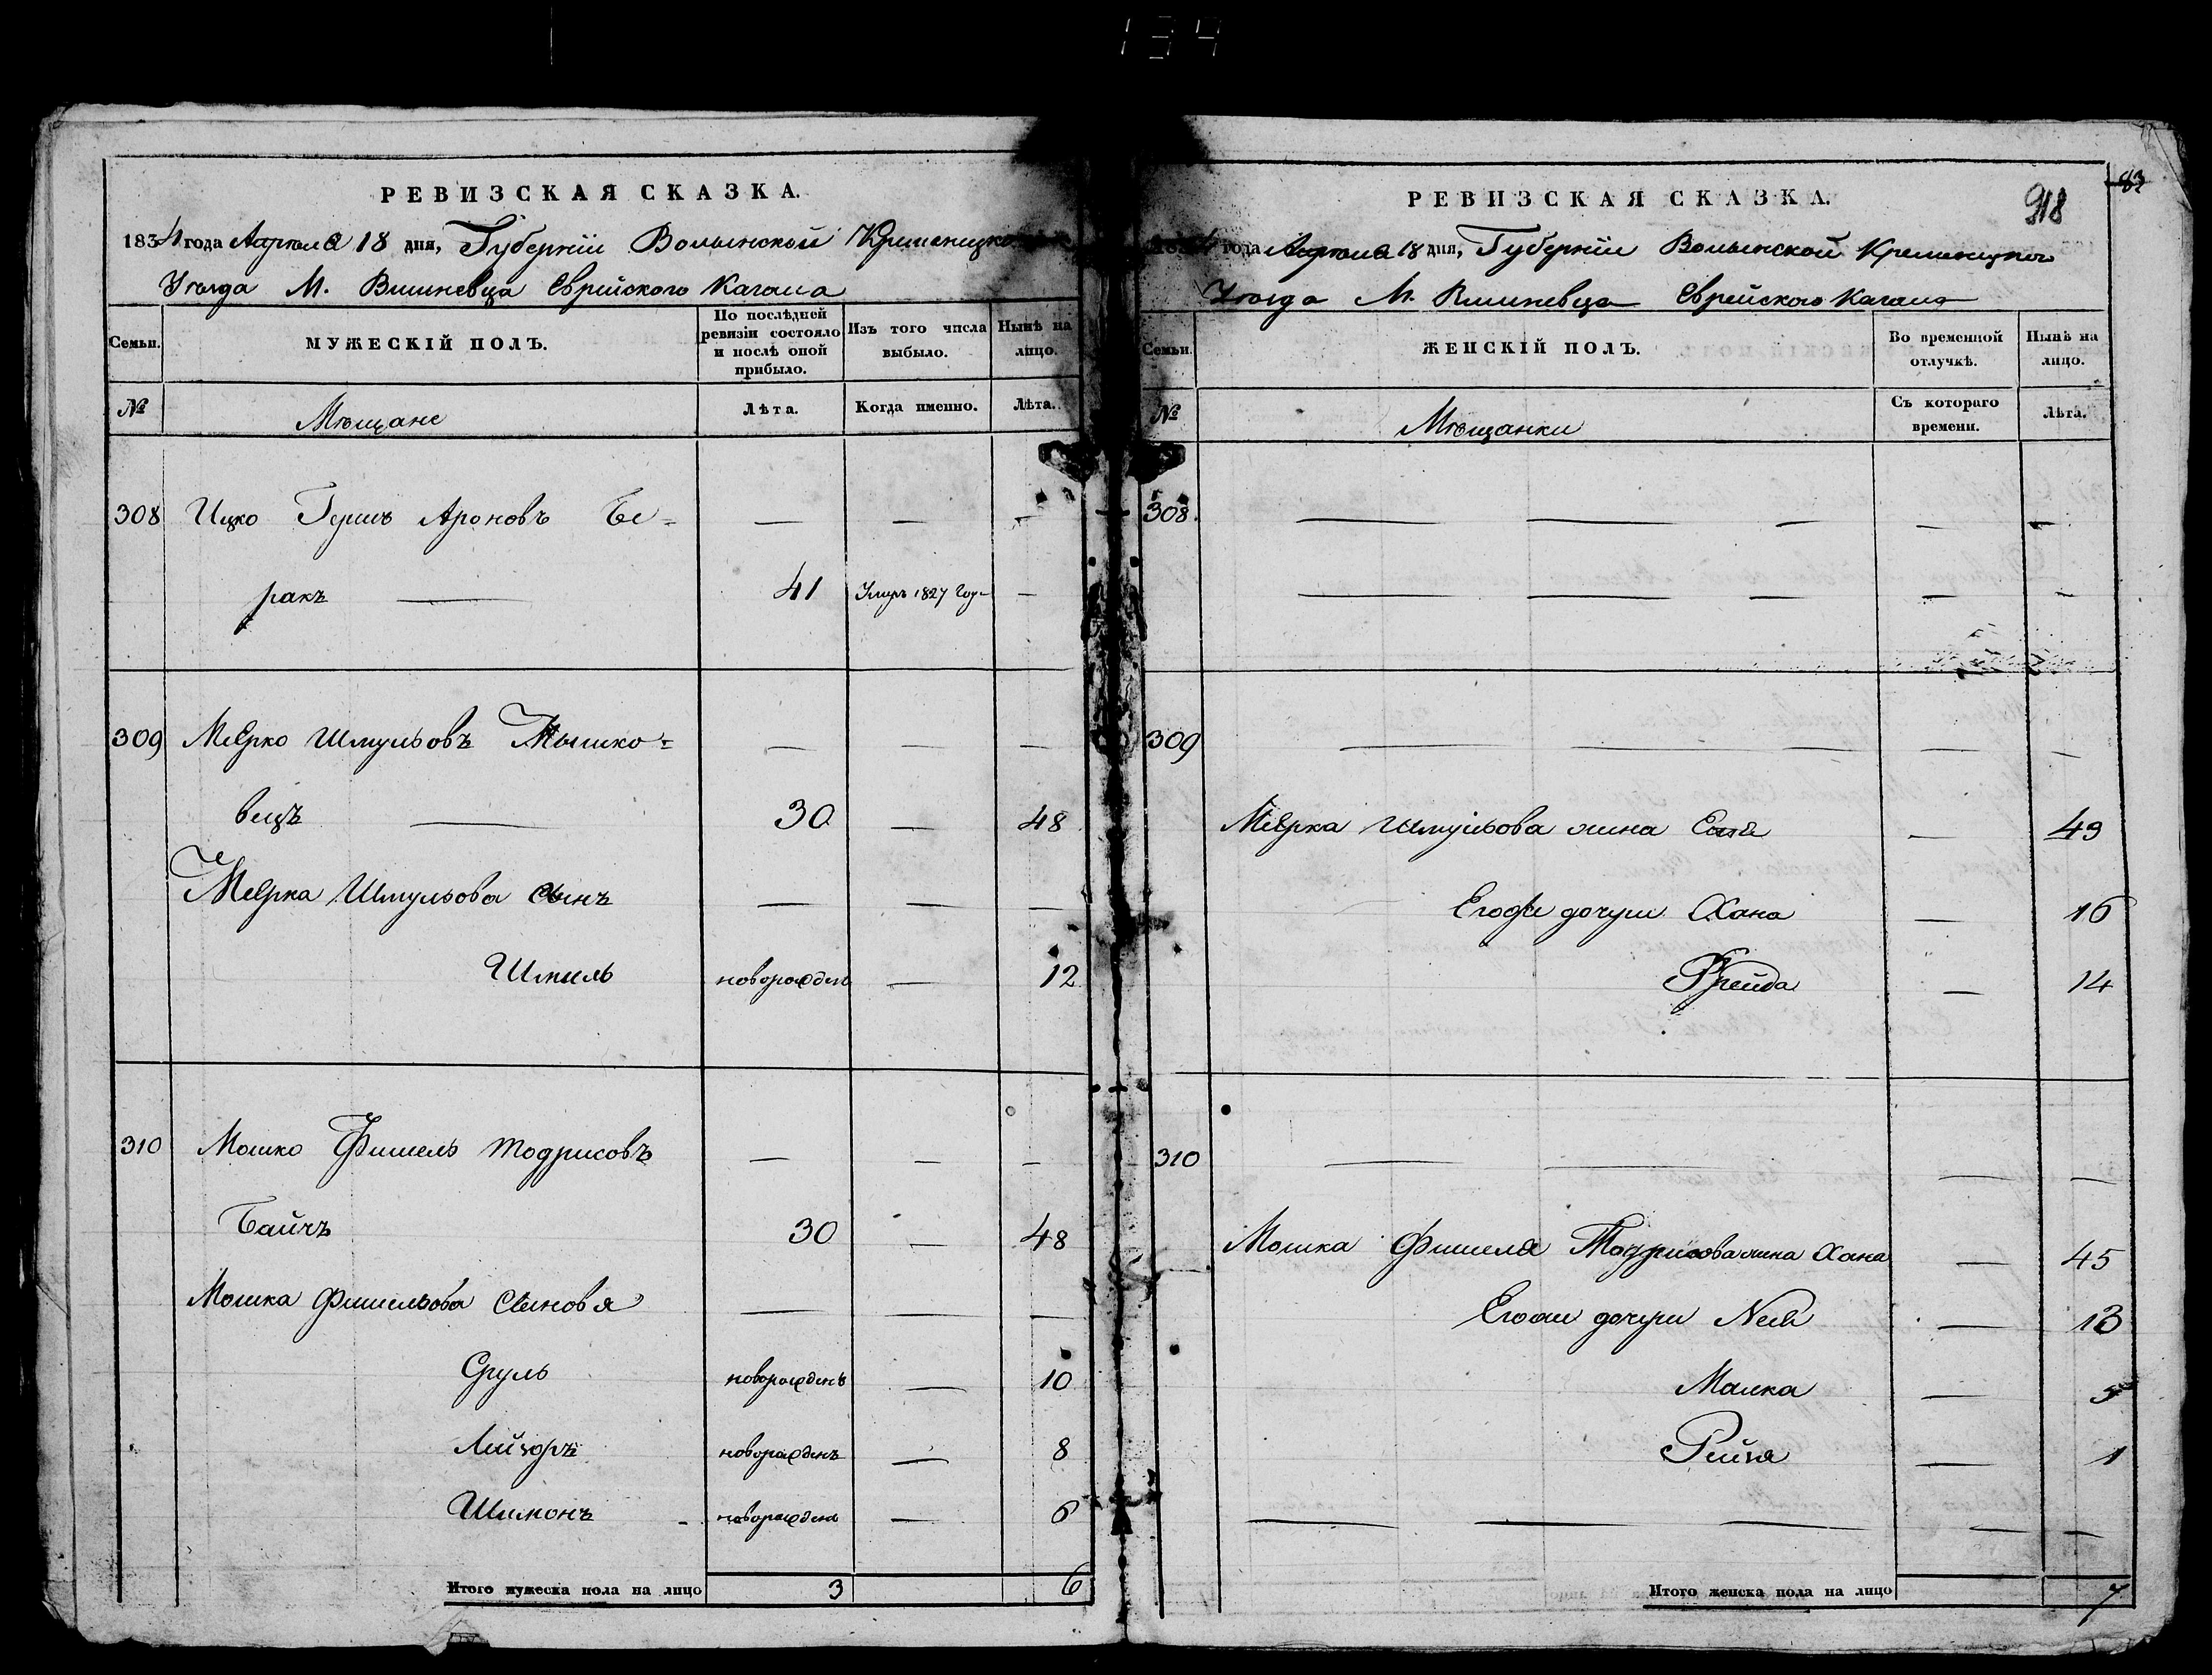 134
РЕВИЗСКАЯ СКАЗКА.
1834 года Апреля 18 дня, Губерніи Волынской Кременицкого
Уезда М. Вишневца Еврейского Кагала
Семьи. МУЖЕСКІЙ ПОЛЪ. По послѣдней ревизіи состояло и послѣ оной прибыло. Изъ того числа выбыло. Нынѣ на лицо.
№ Мещане Лѣта. Когда именно. Лѣта.
308 Ицко Гершъ Ароновъ Бе- — — —
ракъ — 41 Умеръ 1827 году —
309 Меерко Шмульовъ Мышко- — — —
вецъ — 30 — 48
Меерка Шмульова сынъ — — —
Шмиль новорожденъ — 12
310 Мошко Фишель Тодрисовъ — — —
Байчъ 30 — 48
Мошка Фишельова сыновья — — —
Сруль новорожденъ — 10
Лейзоръ новорожденъ — 8
Шимонъ новорожденъ — 6
Итого мужеска пола на лицо 3 6
83
918
РЕВИЗСКАЯ СКАЗКА.
1834 года Апреля 18 дня, Губерніи Волынской Кременицкого
Уезда М. Вишневца Еврейского Кагала
Семьи. ЖЕНСКІЙ ПОЛЪ. Во временной отлучкѣ. Нынѣ на лицо.
№ Мещанки Съ котораго времени. Лѣта.
308. — — — — —
— — — — —
309 — — — — —
Меерка Шмульова жена — 49
Егоже дочери Хана — 16
Фрейда — 14
310 — — — —
Мошка Фишеля Тодрисова жена Хана — 45
Егоже дочери — 13
Малка — 5
Рейзя — 1
— — — — —
Итого женска пола на лицо 7